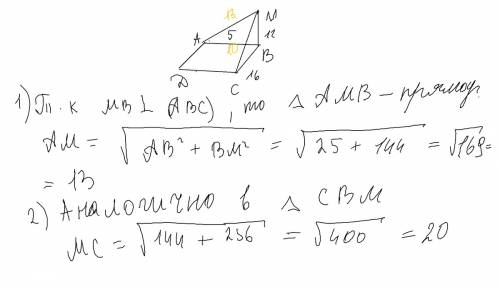 13
M
A
5
12
10
B
D
16
C
1) Т.к MB ⊥ (ABC), то △ AMB - прямоуг.
AM = √(AB² + BM²) = √(25 + 144) = √169 =
= 13
2) Аналогично в △ CBM
MC = √(144 + 256) = √400 = 20